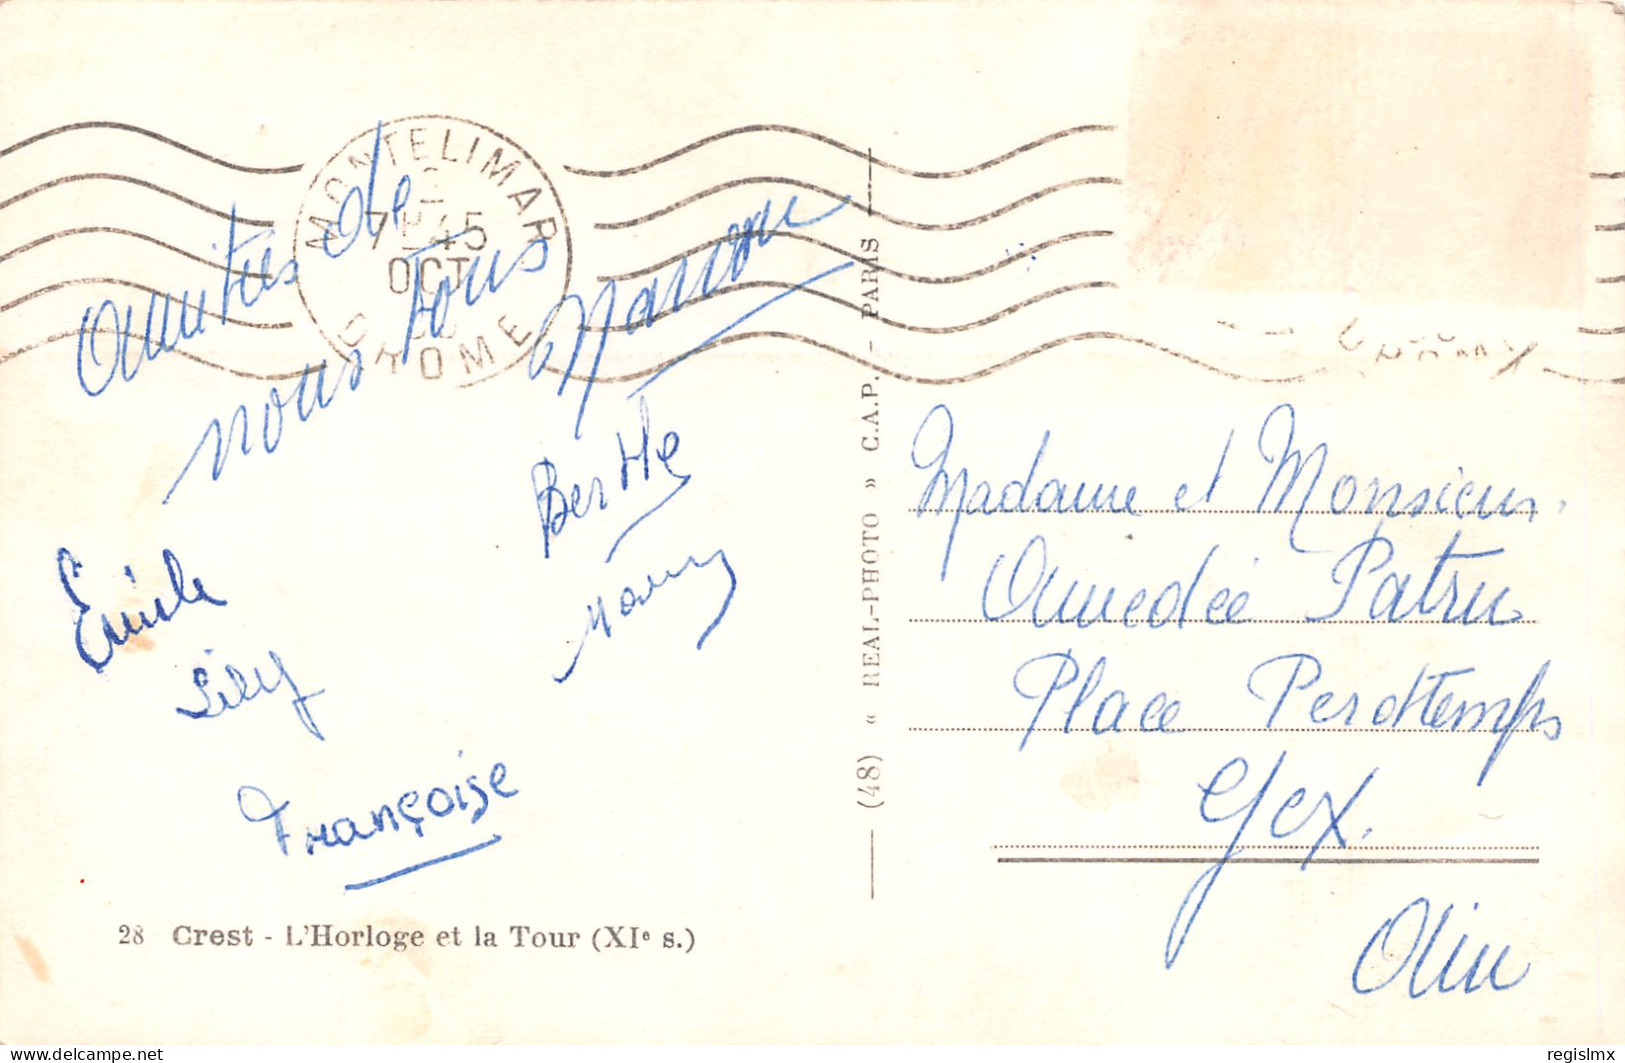 MONTELIMAR
7H45
OCT
DROME
Amitiés de
nous tous
Manon
Berthe
Emile
Lily
Françoise
28 Crest - L'Horloge et la Tour (XIe s.)
(48) « REAL-PHOTO » C.A.P. - PARIS
Madame et Monsieur
Amedée Patru
Place Perdtemps
Gex.
Ain
www.delcampe.net
regislmx